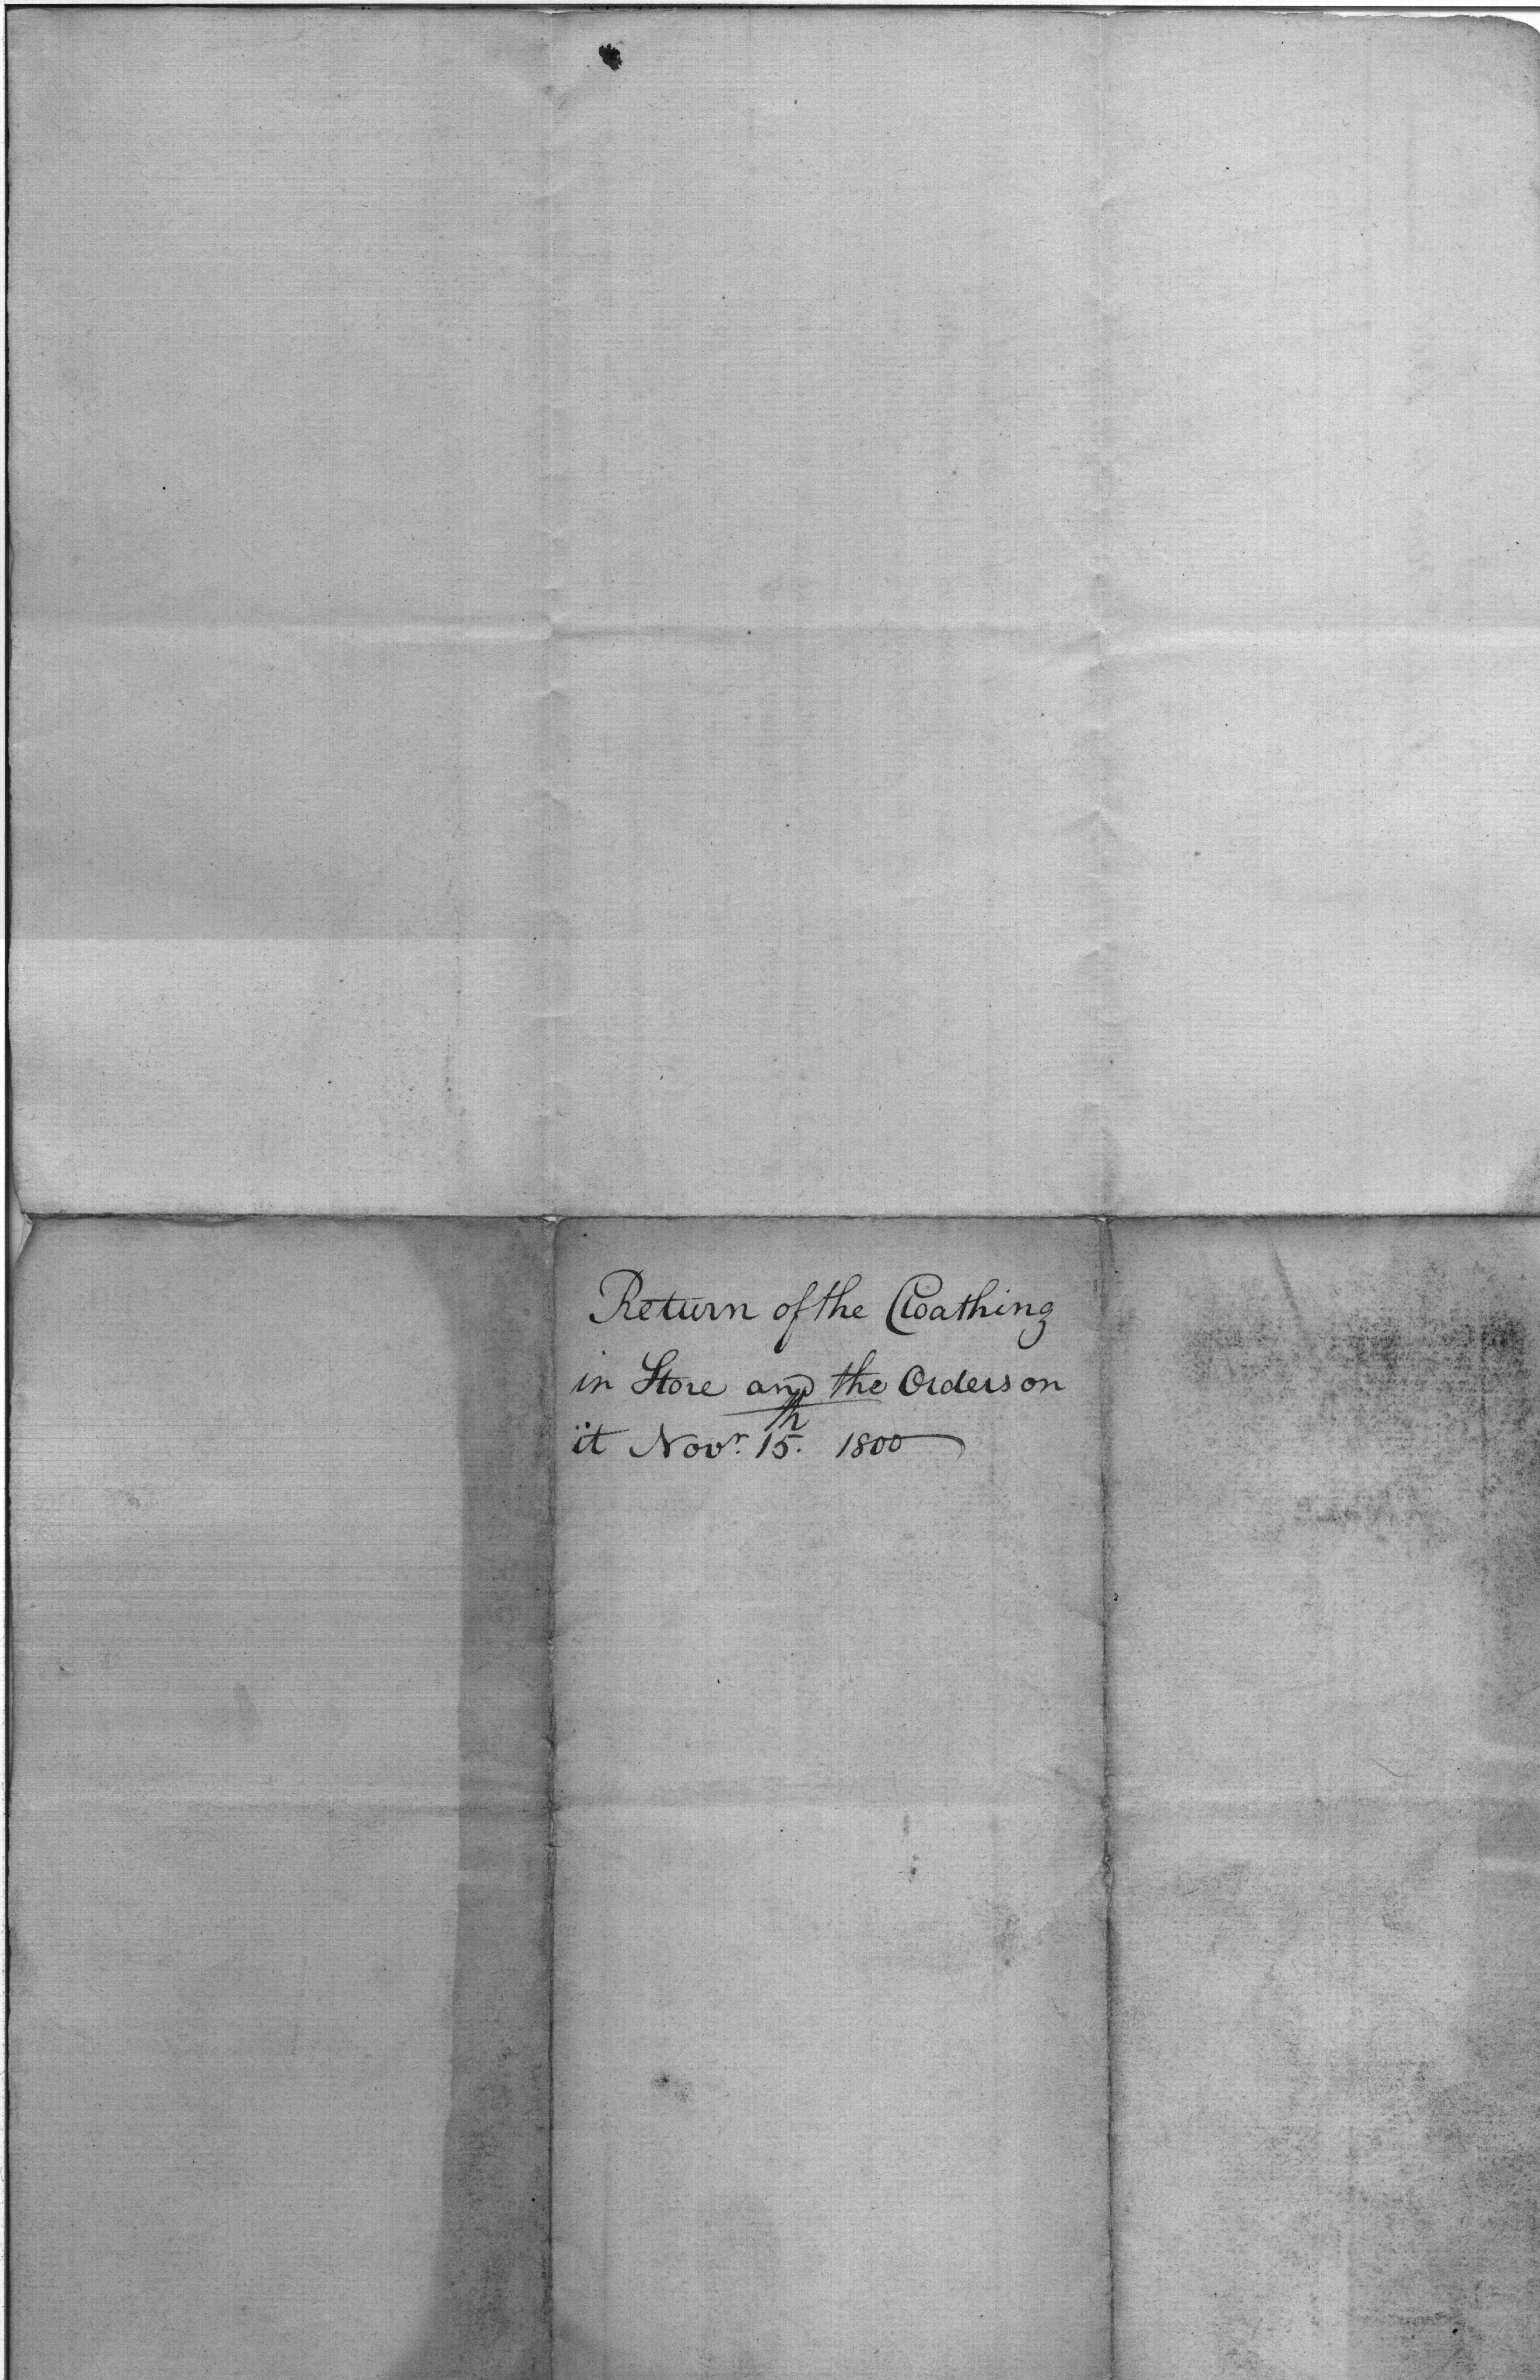 Return of the Cloathing
in Store and the Orders on
it Novr. 15th. 1800